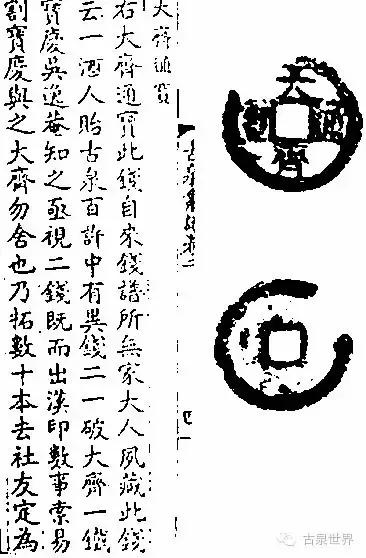 大齊通
大齊通寶
右大齊通寶此錢自來錢譜所無家大人夙藏此錢
云一酒人貽古泉百許中有異錢二一破大齊一鐵
寶慶吳逸菴知之亟視二錢既而出漢印數事索易
割寶慶與之大齊勿舍也乃拓數十本去社友定為
古泉世界